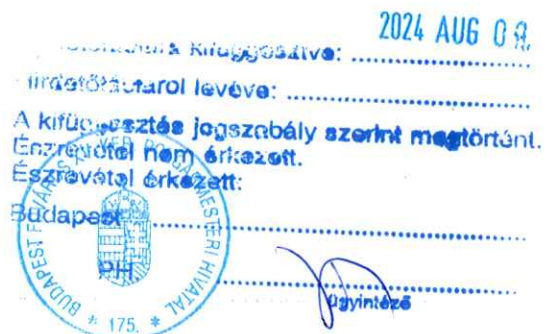 2024 AUG 08.
kifüggesztve: ....................
Hirdetőtábláról levéve: ....................
A kifüggesztés jogszabály szerint megtörtént.
Észrevétel nem érkezett.
Észrevétel érkezett:
Budapest ....................
BUDAPEST FŐVÁROS KER. POLGÁRMESTERI HIVATAL
* 175. *
PH
....................
ügyintéző